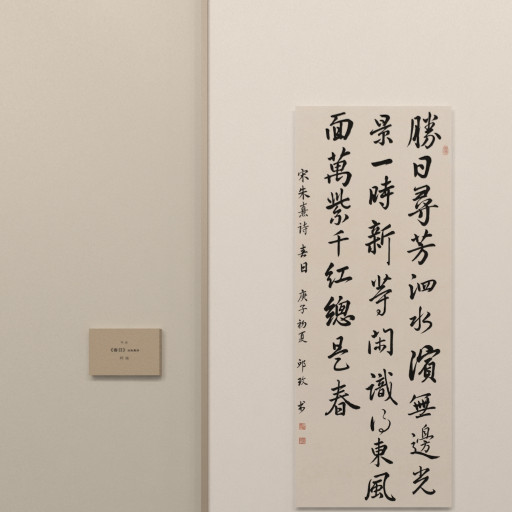 勝日尋芳泗水濱無邊光
景一時新等閑識得東風
面萬紫千红總是春
宋朱熹诗 春日 庚子初夏 邱玫书